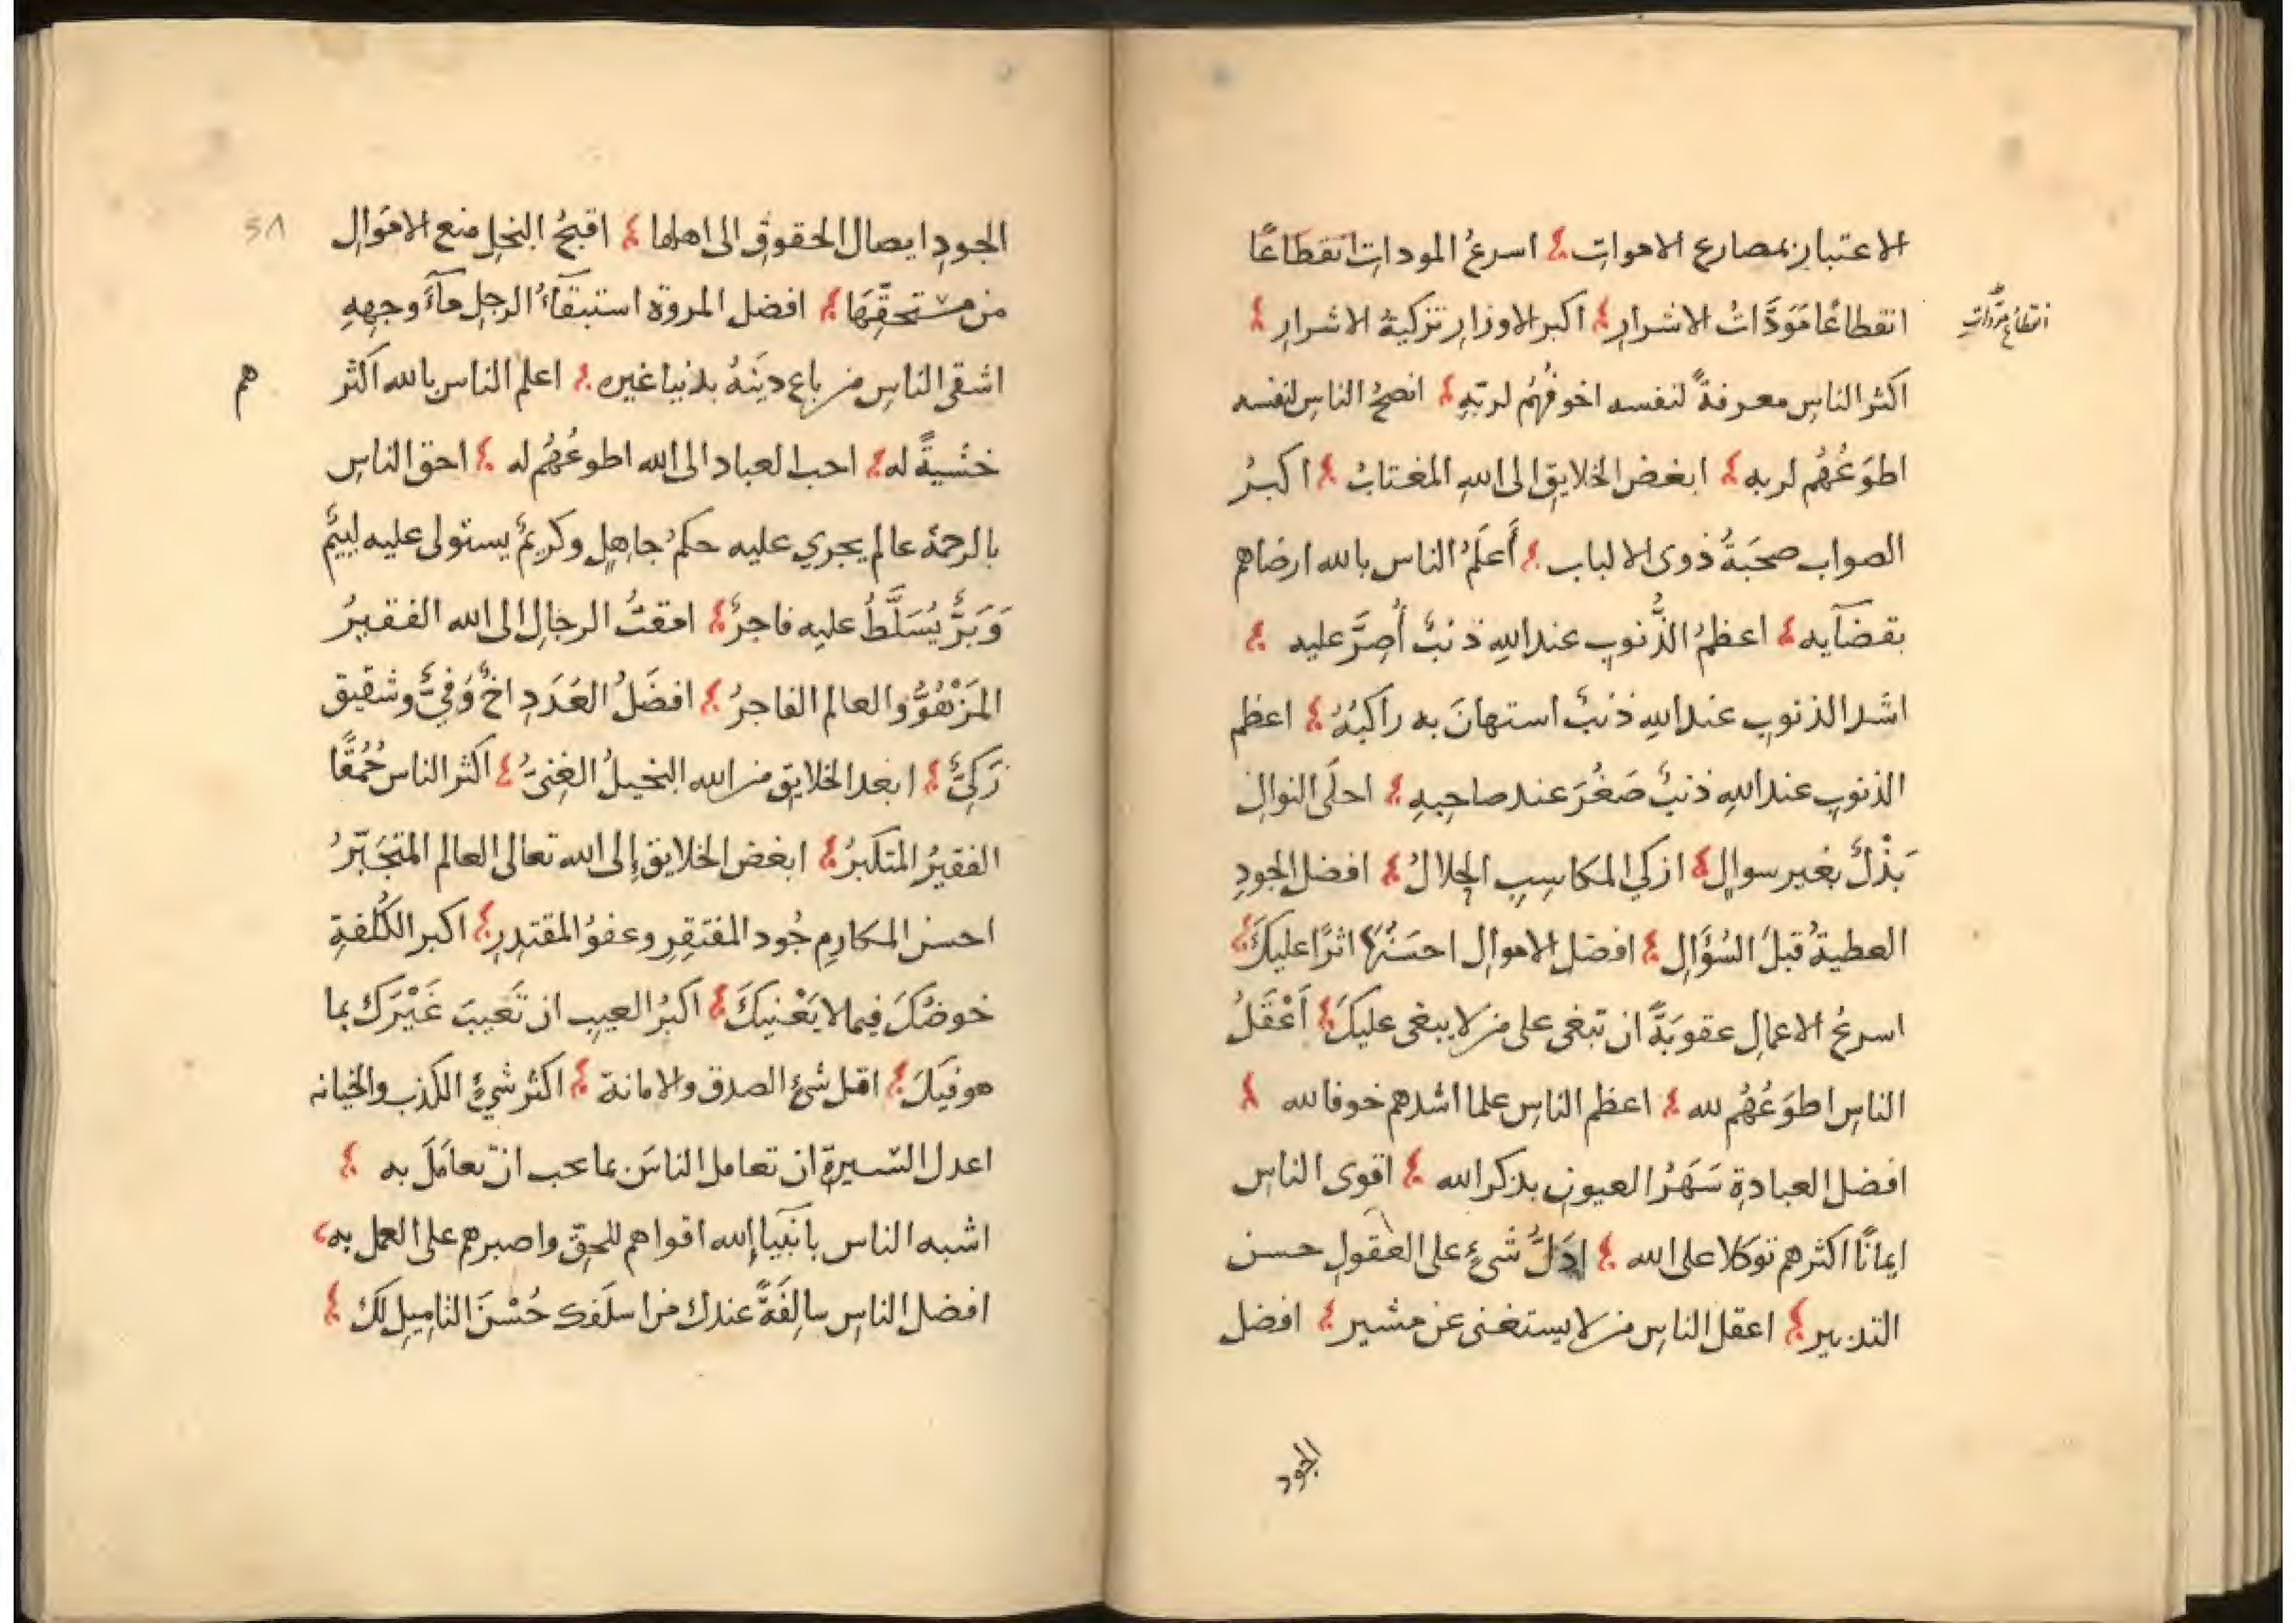 الاعتبار بمصارع الاموات اسرعُ المودات انقطاعًا
انقطاعًا مَوَدَّاتُ الاشرار اكبر الاوزار تزكية الاشرار
انقطاع مودّات
اكثر الناس معرفةً لنفسه اخوفُهُم لربّهِ انصحُ الناس لنفسه
اطوَعُهُم لربه ابغض الخلايق الى اللهِ المغتابُ اكبرُ
الصواب صحبَةُ ذوى الالباب أَعلَمُ الناس بالله ارضاهم
بقضآيه اعظمُ الذُّنوبِ عند اللهِ ذنبٌ أُصِرَّ عليه
اشد الذنوبِ عند اللهِ ذنبٌ استهانَ به راكبُهُ اعظم
الذنوبِ عند اللهِ ذنبٌ صَغُرَ عند صاحبِهِ احلَى النوال
بَذْلٌ بغير سوالٍ ازكي المكاسِبِ الحلالُ افضل الجودِ
العطيةُ قبلَ السُؤَالِ افضل الاموالِ احسَنُهَا اثرًا عليكَ
اسرعُ الاعمالِ عقوبَةً ان تبغى على من لا يبغى عليكَ أَعْقَلُ
الناسِ اطوَعُهُم لله اعظم الناسِ علما اشدهم خوفا لله
افضل العبادةِ سَهَرُ العيونِ بذكر الله اقوى الناسِ
ايمانًا اكثرهم توكلا على الله ادَلُّ شىءٍ على العقولِ حسن
التدبير اعقل الناس من لا يستغنى عن مشير افضل
الجود
الجودِ ايصال الحقوقِ الى اهلها اقبحُ البخلِ منع الاموَالِ
من مستحقّهَا افضل المروة استبقآءُ الرجلِ مآءَ وجههِ
اشقى الناسِ من باع دينَهُ بدنيا غيره اعلم الناس بالله اكثر
هم
خشيةً له احب العباد الى الله اطوعُهُم له احق الناسِ
بالرحمة عالم يجري عليه حكمُ جاهلٍ وكريمٌ يستولى عليه لييمٌ
وَبَرٌّ يُسَلَّطُ عليه فاجرٌ امقتُ الرجالِ الى الله الفقيرُ
المَزْهُوُّ والعالم الفاجرُ افضَلُ العَدَدِ اخٌ وَفِيٌّ وشقيق
زَكِيٌّ ابعد الخلايق من الله البخيلُ الغِنىُّ اكثر الناس حُمُقًا
الفقيرُ المتكبرُ ابغض الخلايق إلى الله تعالى العالم المتجَبّرُ
احسن المكارمِ جُود المفتقِرِ وعفوُ المقتدِرِ اكبر الكُلفةِ
خوضُكَ فيما لا يَعْنيكَ اكبرُ العيبِ ان تَعيبَ غَيْرَك بما
هو فيكَ اقل شىءٍ الصدق والامانة اكثر شىءٍ الكذب والخيانه
اعدل السّيرةِ ان تعامل الناسَ بما تحب ان تعامَلَ به
اشبه الناس بانبيآءِ الله اقواهم للحقّ واصبرهم على العمل به
افضل الناس سالِفَةً عندك من اسلَفك حُسْنَ التاميلِ لك